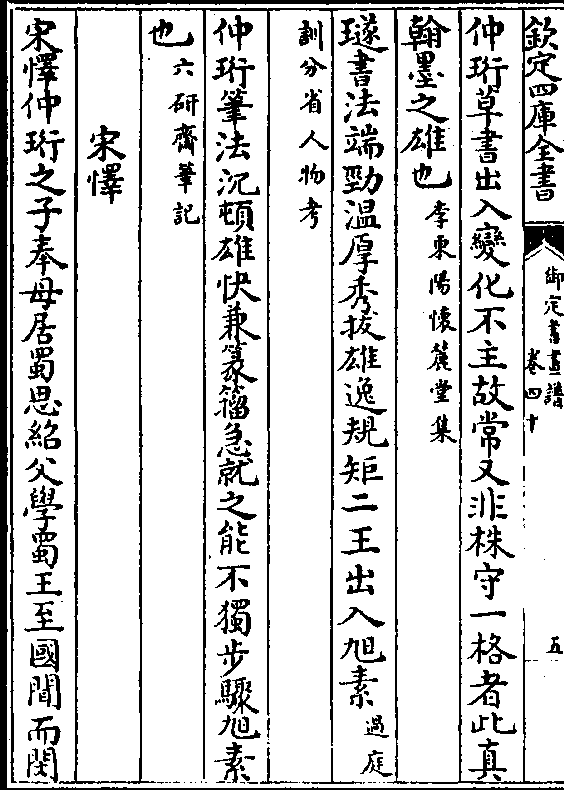 欽定四庫全書
御定書畫譜
卷四十
五
仲珩草書出入變化不主故常又非株守一格者此真
翰墨之雄也李東陽懷麓堂集
璲書法端勁溫厚秀拔雄逸規矩二王出入旭素過庭
訓分省人物考
仲珩筆法沉頓雄快兼篆籀急就之能不獨步驟旭素
也六研齋筆記
宋懌
宋懌仲珩之子奉母居蜀思紹父學蜀王至國聞而閔